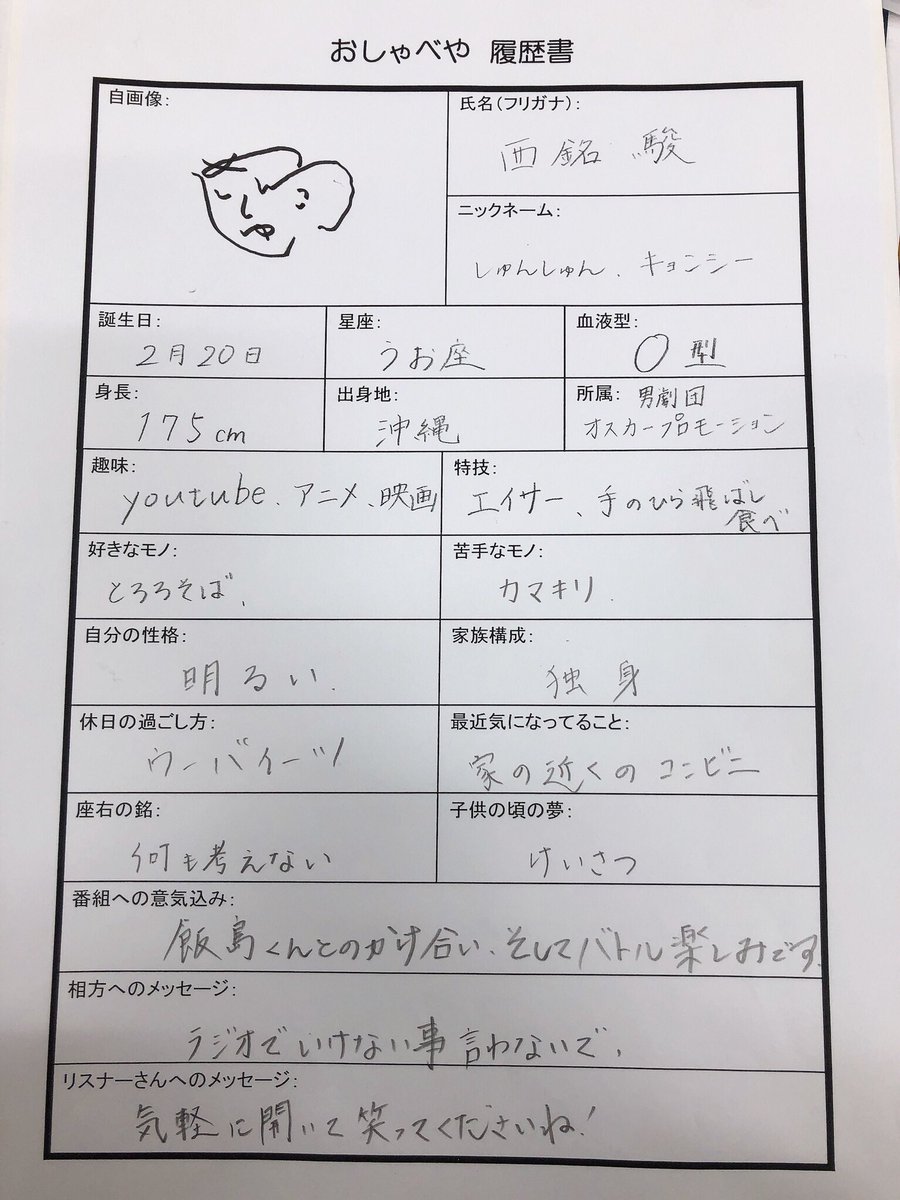 おしゃべや 履歴書
自画像:
氏名(フリガナ):
西銘 駿
ニックネーム:
しゅんしゅん、キョンシー
誕生日:
2月20日
星座:
うお座
血液型:
O型
身長:
175cm
出身地:
沖縄
所属: 男劇団
オスカープロモーション
趣味:
youtube、アニメ、映画
特技:
エイサー、手のひら飛ばし
食べ
好きなモノ:
とろろそば、
苦手なモノ:
カマキリ.
自分の性格:
明るい.
家族構成:
独身
休日の過ごし方:
ウーバイーツ
最近気になってること:
家の近くのコンビニ
座右の銘:
何も考えない
子供の頃の夢:
けいさつ
番組への意気込み:
飯島くんとのかけ合い、そしてバトル楽しみです.
相方へのメッセージ:
ラジオでいけない事言わないで、
リスナーさんへのメッセージ:
気軽に開いて笑ってくださいね!